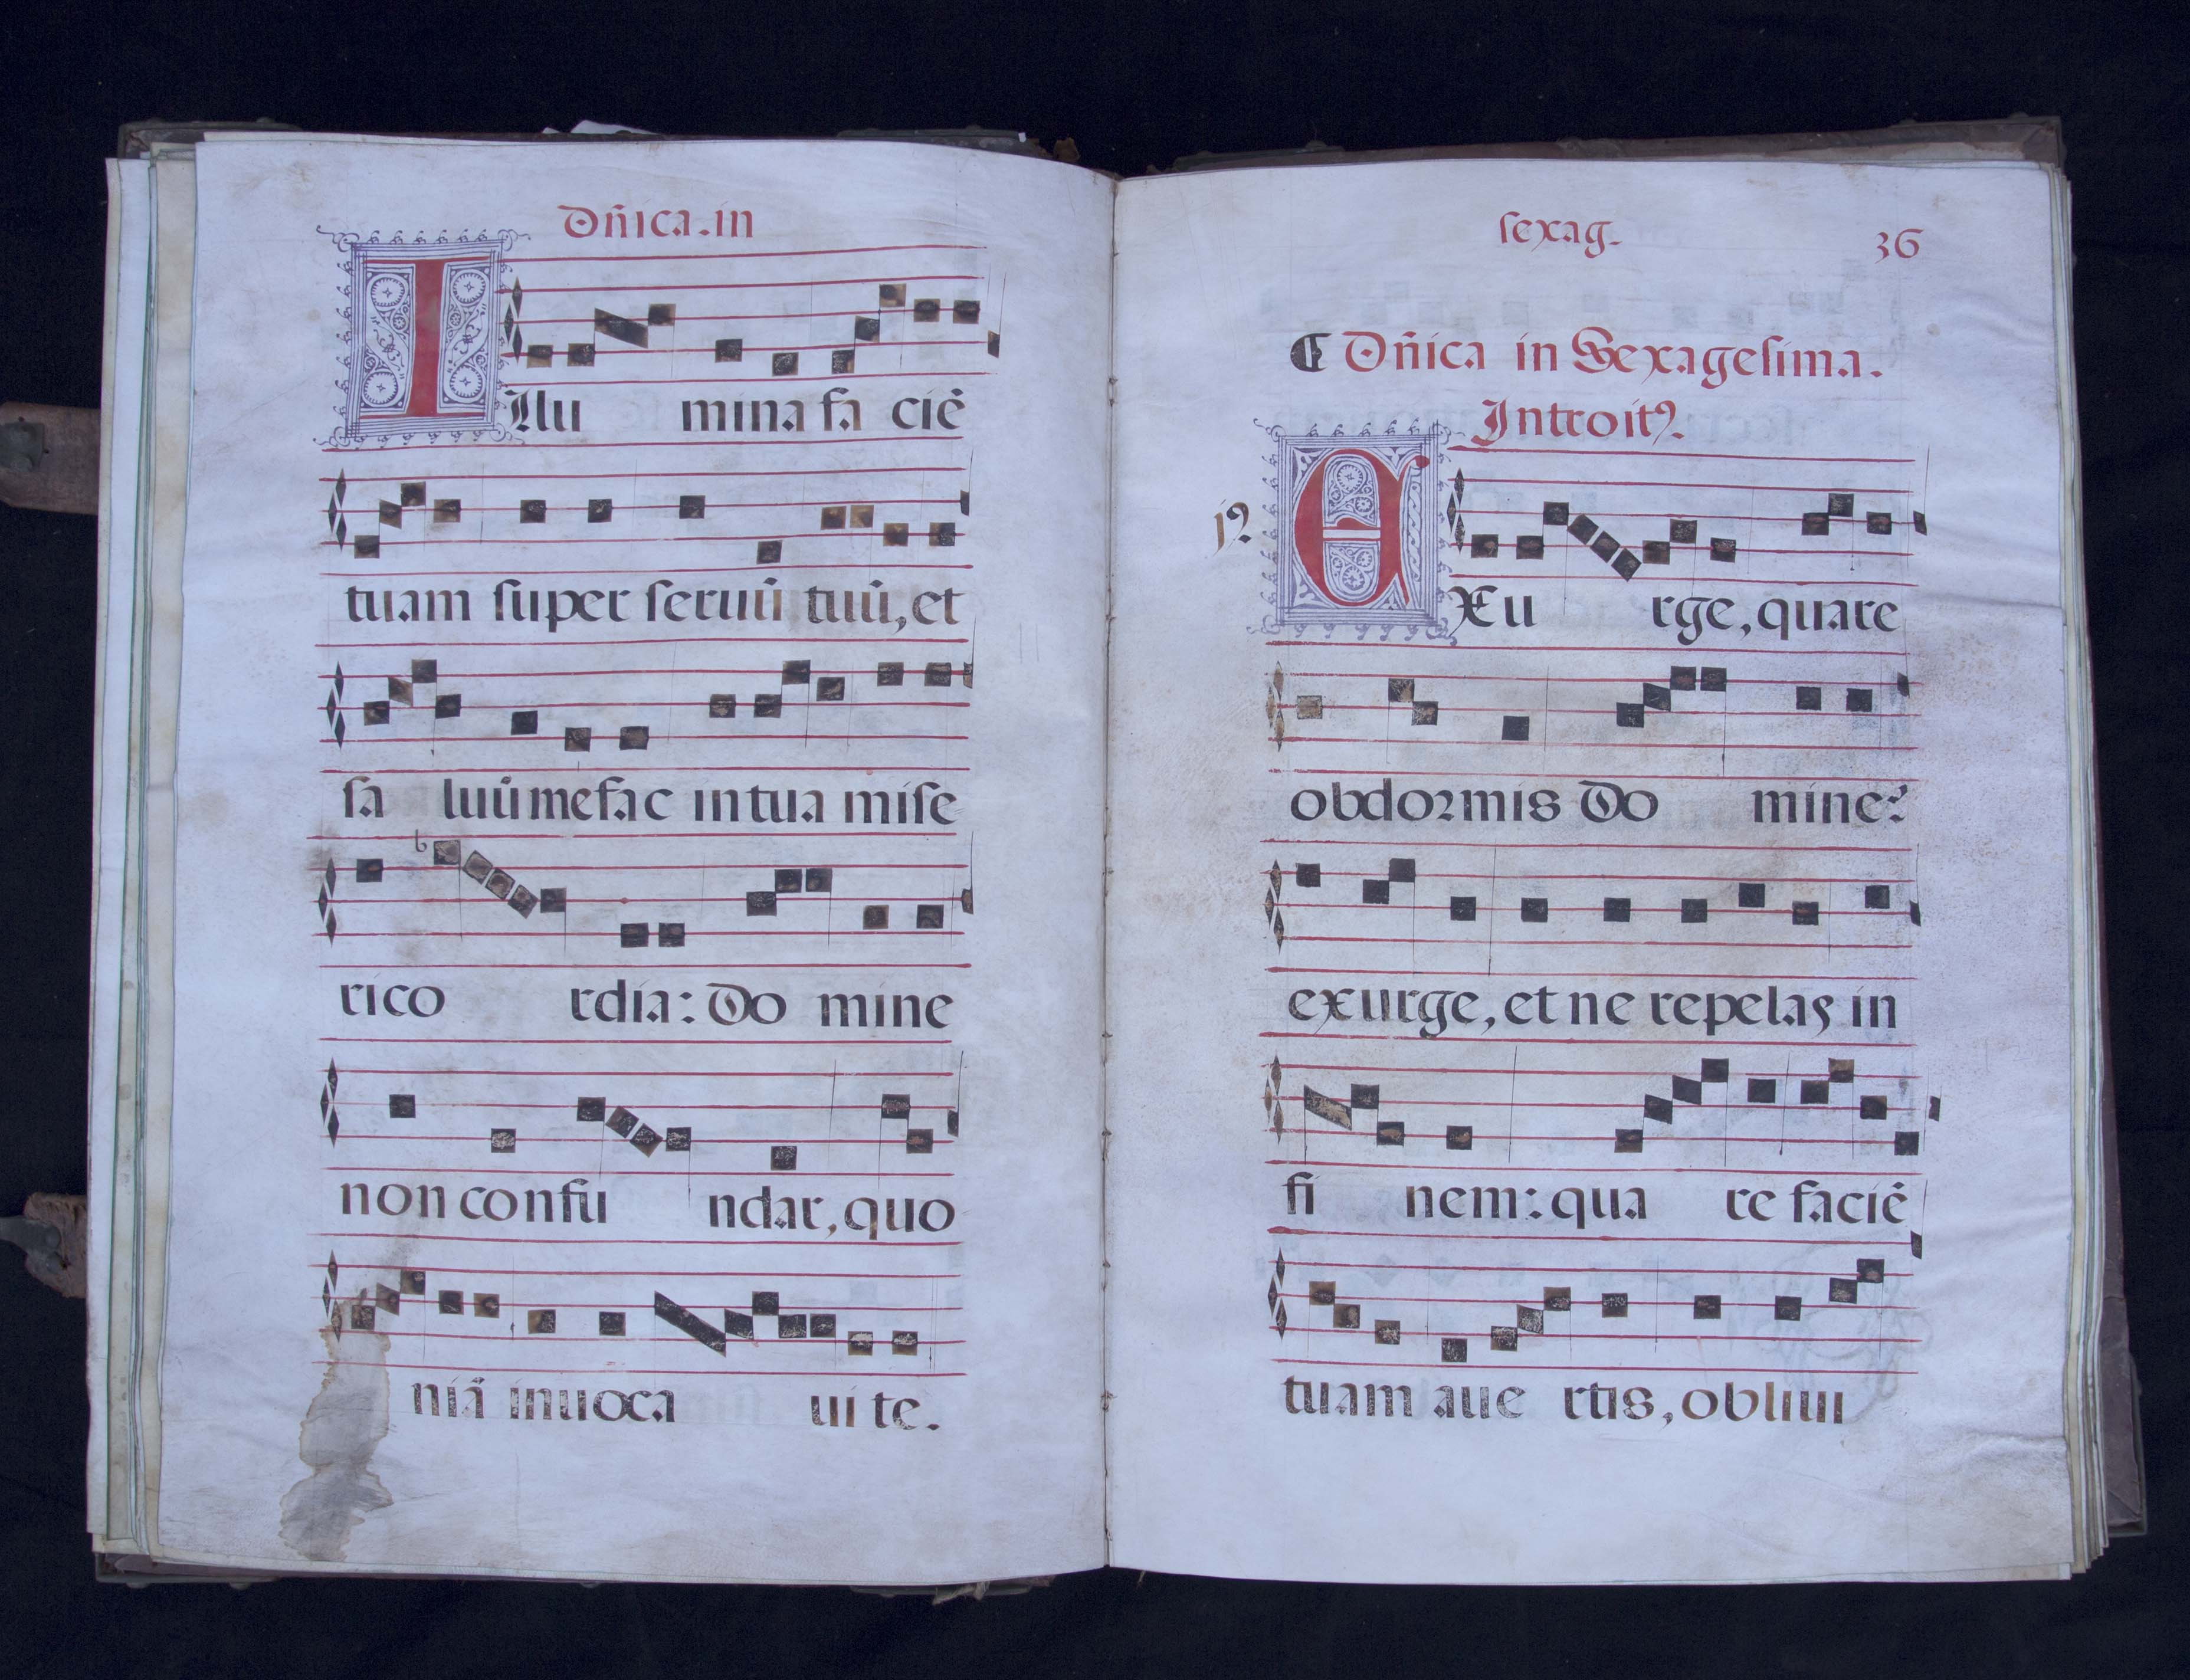 Dñica. in
Illu mina fa ciē
tuam super seruū tuū, et
sa luū me fac in tua mise
rico rdia: Do mine
non confu ndar, quo
niā inuoca ui te.
sexag. 36
Dñica in Sexagesima.
Introitꝰ.
EXu rge, quare
obdormis Do mine?
exurge, et ne repelas in
fi nem: qua re faciē
tuam aue rtis, obliui